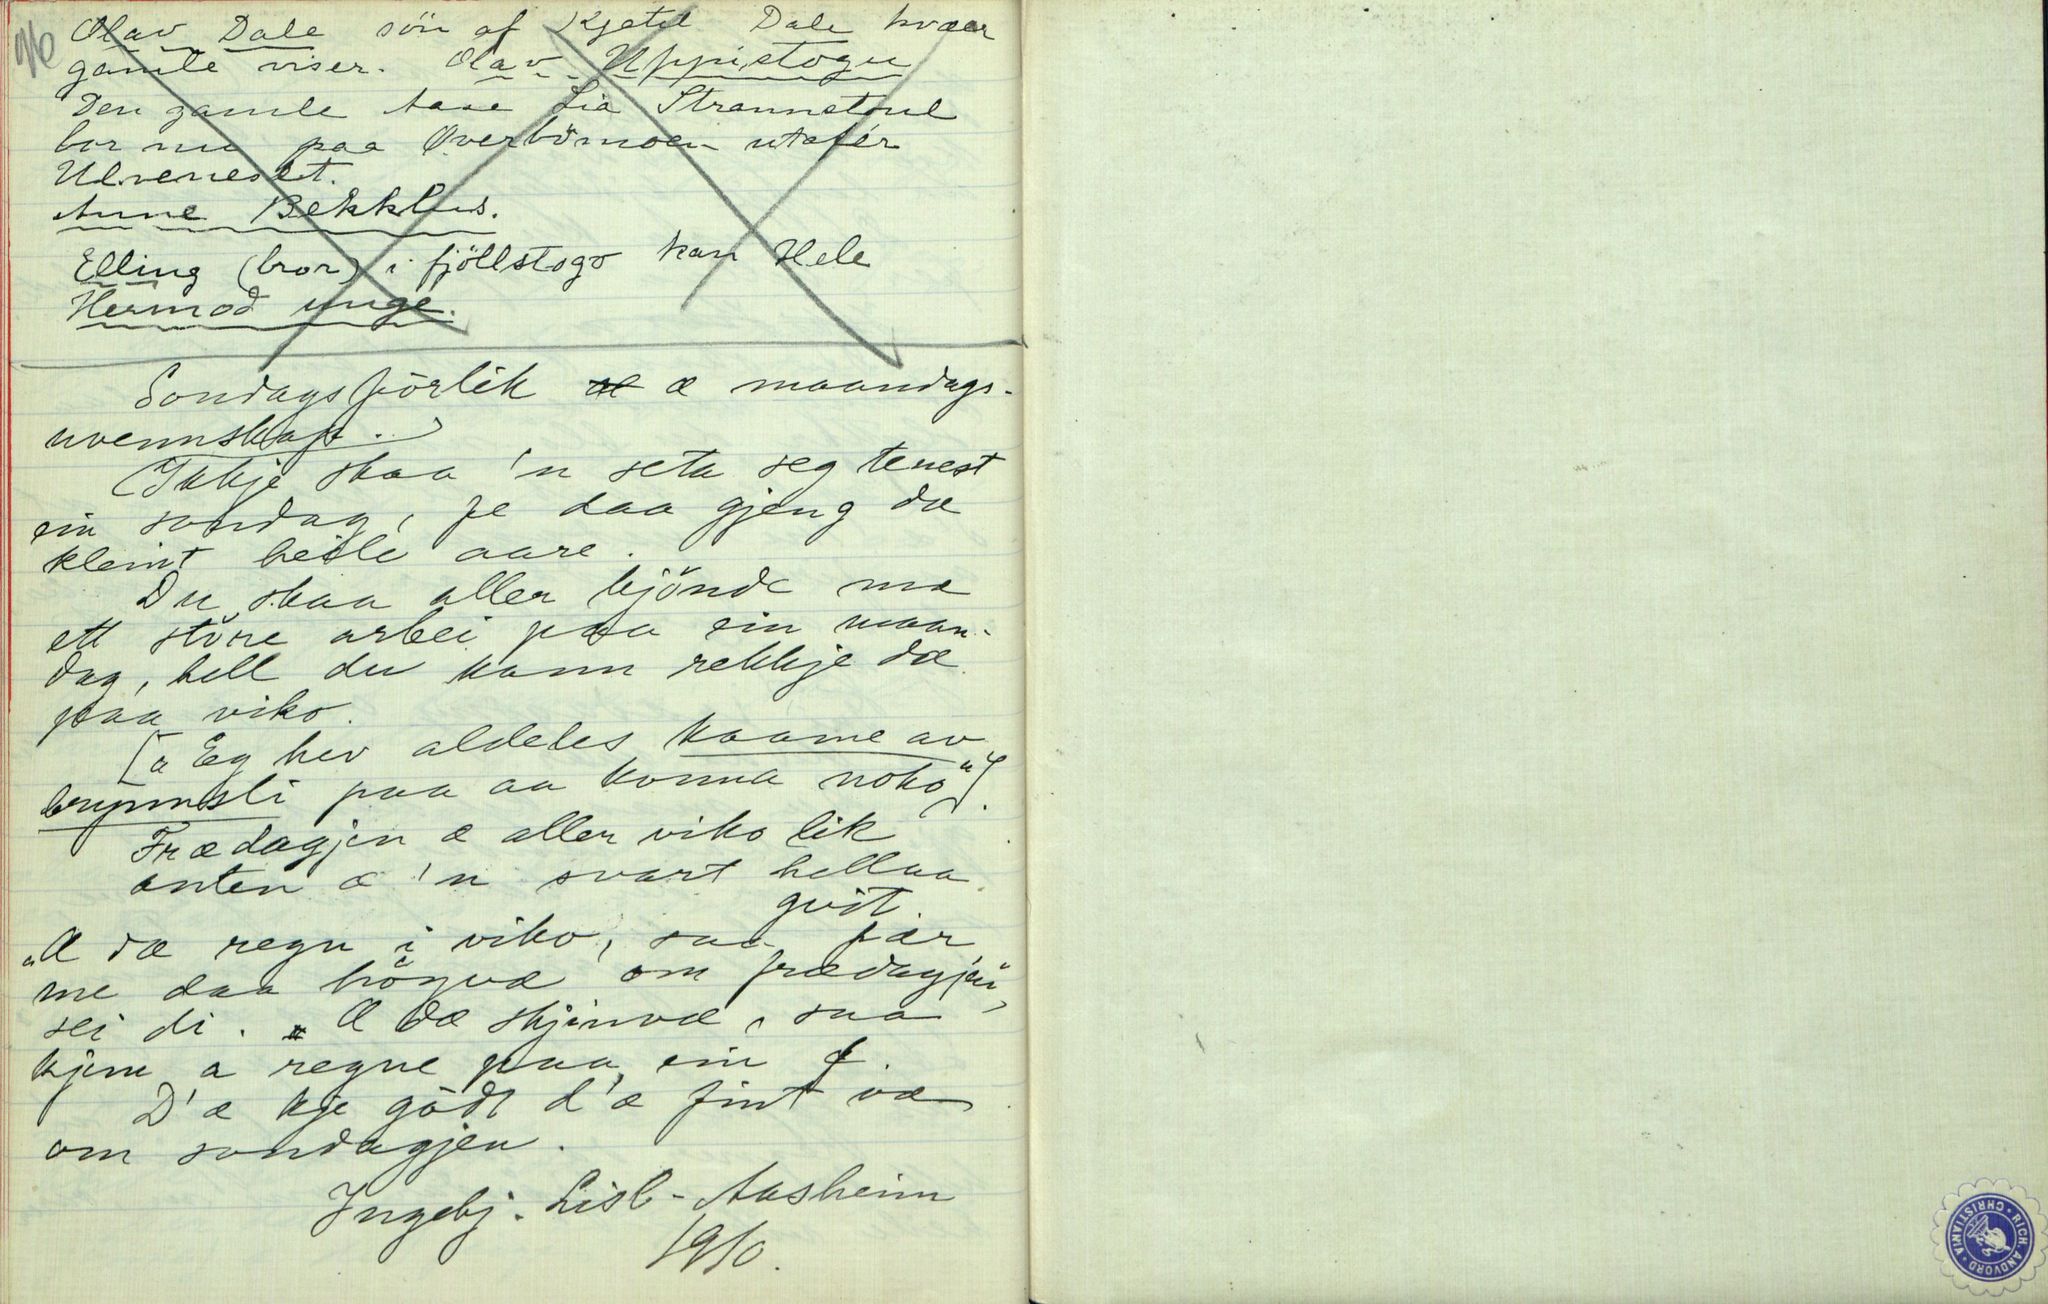 96
Olav Dale sön af Kjetil Dale kvæer
gamle viser. Olav Uppistogu
Den gamle Aase Lia Strannstoul
bor nu paa Øverbömoen utafér
Ulveneslet.
Anne Bekkhus.
Elling (bror) i fjöllstogo kan Hele
Hermod unge.
Sondagsförlik æ maandags-
uvennskap.
Ikkje skaa 'n seta seg tenest
ein sondag, fe daa gjeng dæ
kleint heile aare.
Du skaa aller bjönde mæ
ett störe arbei paa ein maan-
dag, hell du kann rekkje dæ
paa viko.
[„Eg hev aldeles kaame av
brynnsli paa aa kunna noko"].
Frædagjen æ aller viko lik
anten æ 'n svart hellaa
qvit.
„Æ dæ regn i viko, saa fær
me daa högvæ om frædagjen"
sei di. Æ dæ skjinvæ, saa
kjem a regne paa ein f.
D'æ kje gödt d'æ fint væ
om sondagjen.
Ingebj. Lisl-Aasheim
1910.
RICH. ANDVORD · CHRISTIANIA ·